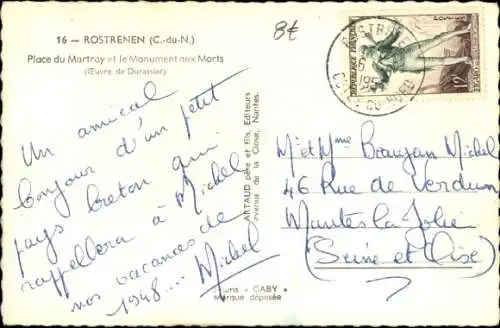 16 — ROSTRENEN (C.-du-N.)
Place du Martray et le Monument aux Morts
(Œuvre de Durassier)
8€
Un amical
bonjour d'un petit
pays breton qui
rappellera à Michel
nos vacances de
1948...
Michel
ARTAUD père et fils, Editeurs
avenue de la Close, Nantes.
"GABY"
Marque déposée
REPUBLIQUE FRANÇAISE
12F
ROSTRENEN
M. et Mme Beaujan Michel
46 Rue de Verdun
Mantes la Jolie
(Seine et Oise)